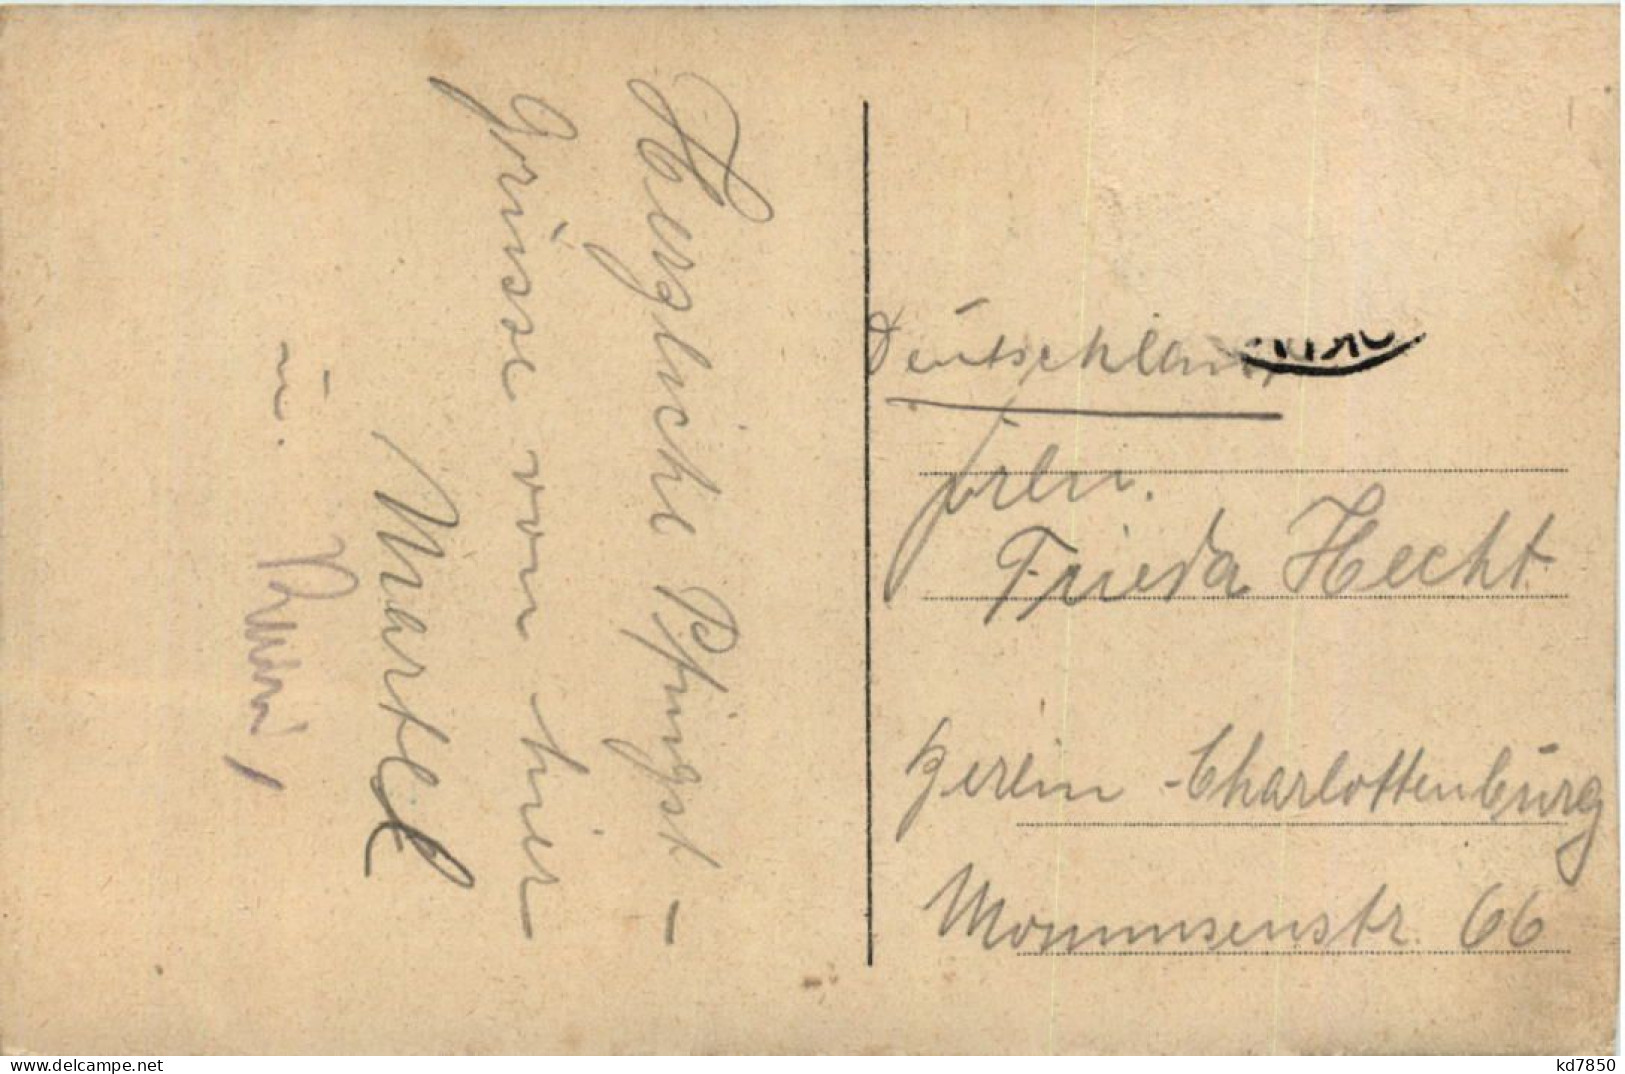 Herzliche Pfingst-
Grüsse von hier
Martel
u.
Deutschland
Frln.
Frieda Hecht
Berlin-Charlottenburg
Mommsenstr. 66
www.delcampe.net
kd7850